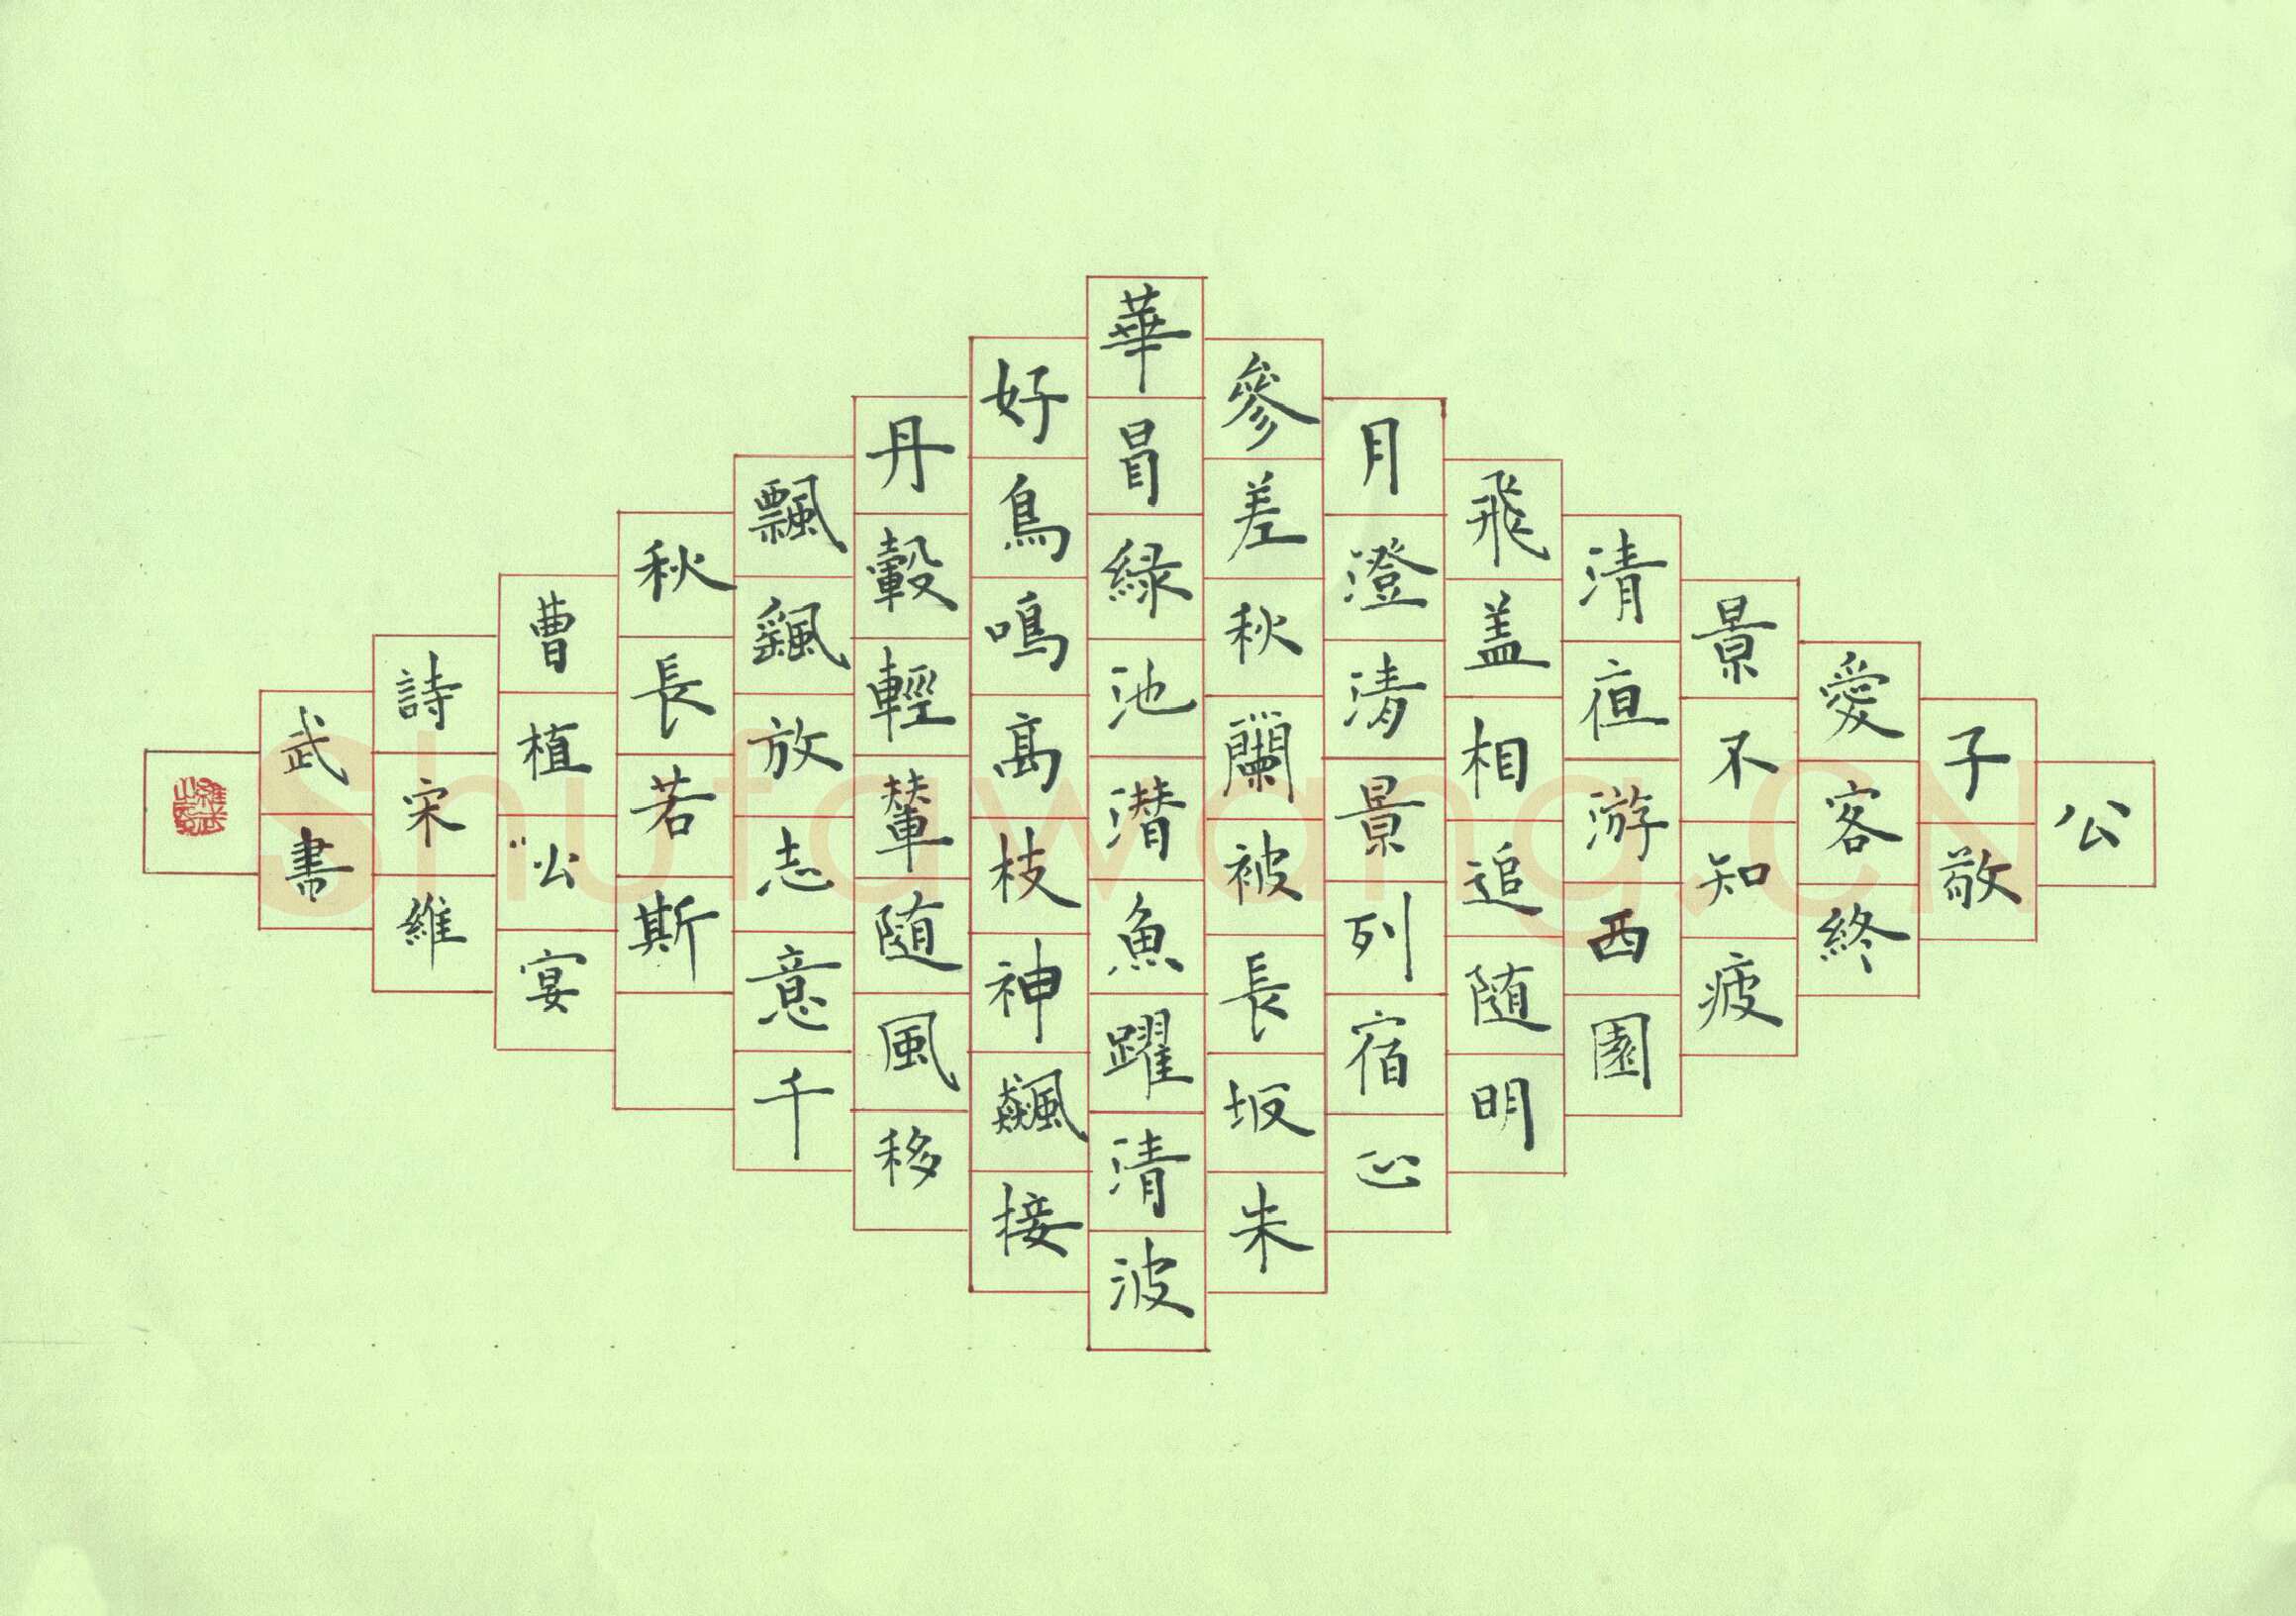 公
子敬
愛客終
景不知疲
清夜游西園
飛盖相追随明
月澄清景列宿正
參差秋蘭被長坂朱
華冒緑池潜魚躍清波
好鳥鳴高枝神飇接
丹轂輕輦随風移
飄颻放志意千
秋長若斯
曹植公宴
詩宋維
武書
Shufawang.CN